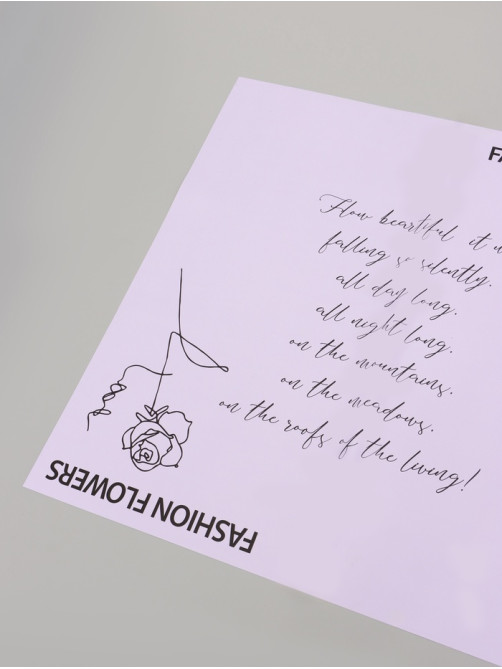 FA
How beartiful it w
falling so silently.
all day long.
all night long.
on the mountains.
on the meadows.
on the roofs of the living!
FASHION FLOWERS